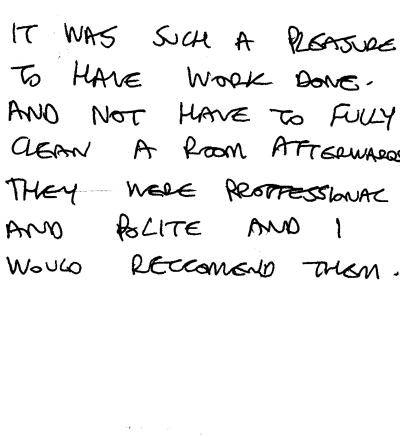 IT WAS SUCH A PLEASURE
TO HAVE WORK DONE.
AND NOT HAVE TO FULLY
CLEAN A ROOM AFTERWARDS
THEY WERE PROFFESSIONAL
AND POLITE AND I
WOULD RECCOMEND THEM.